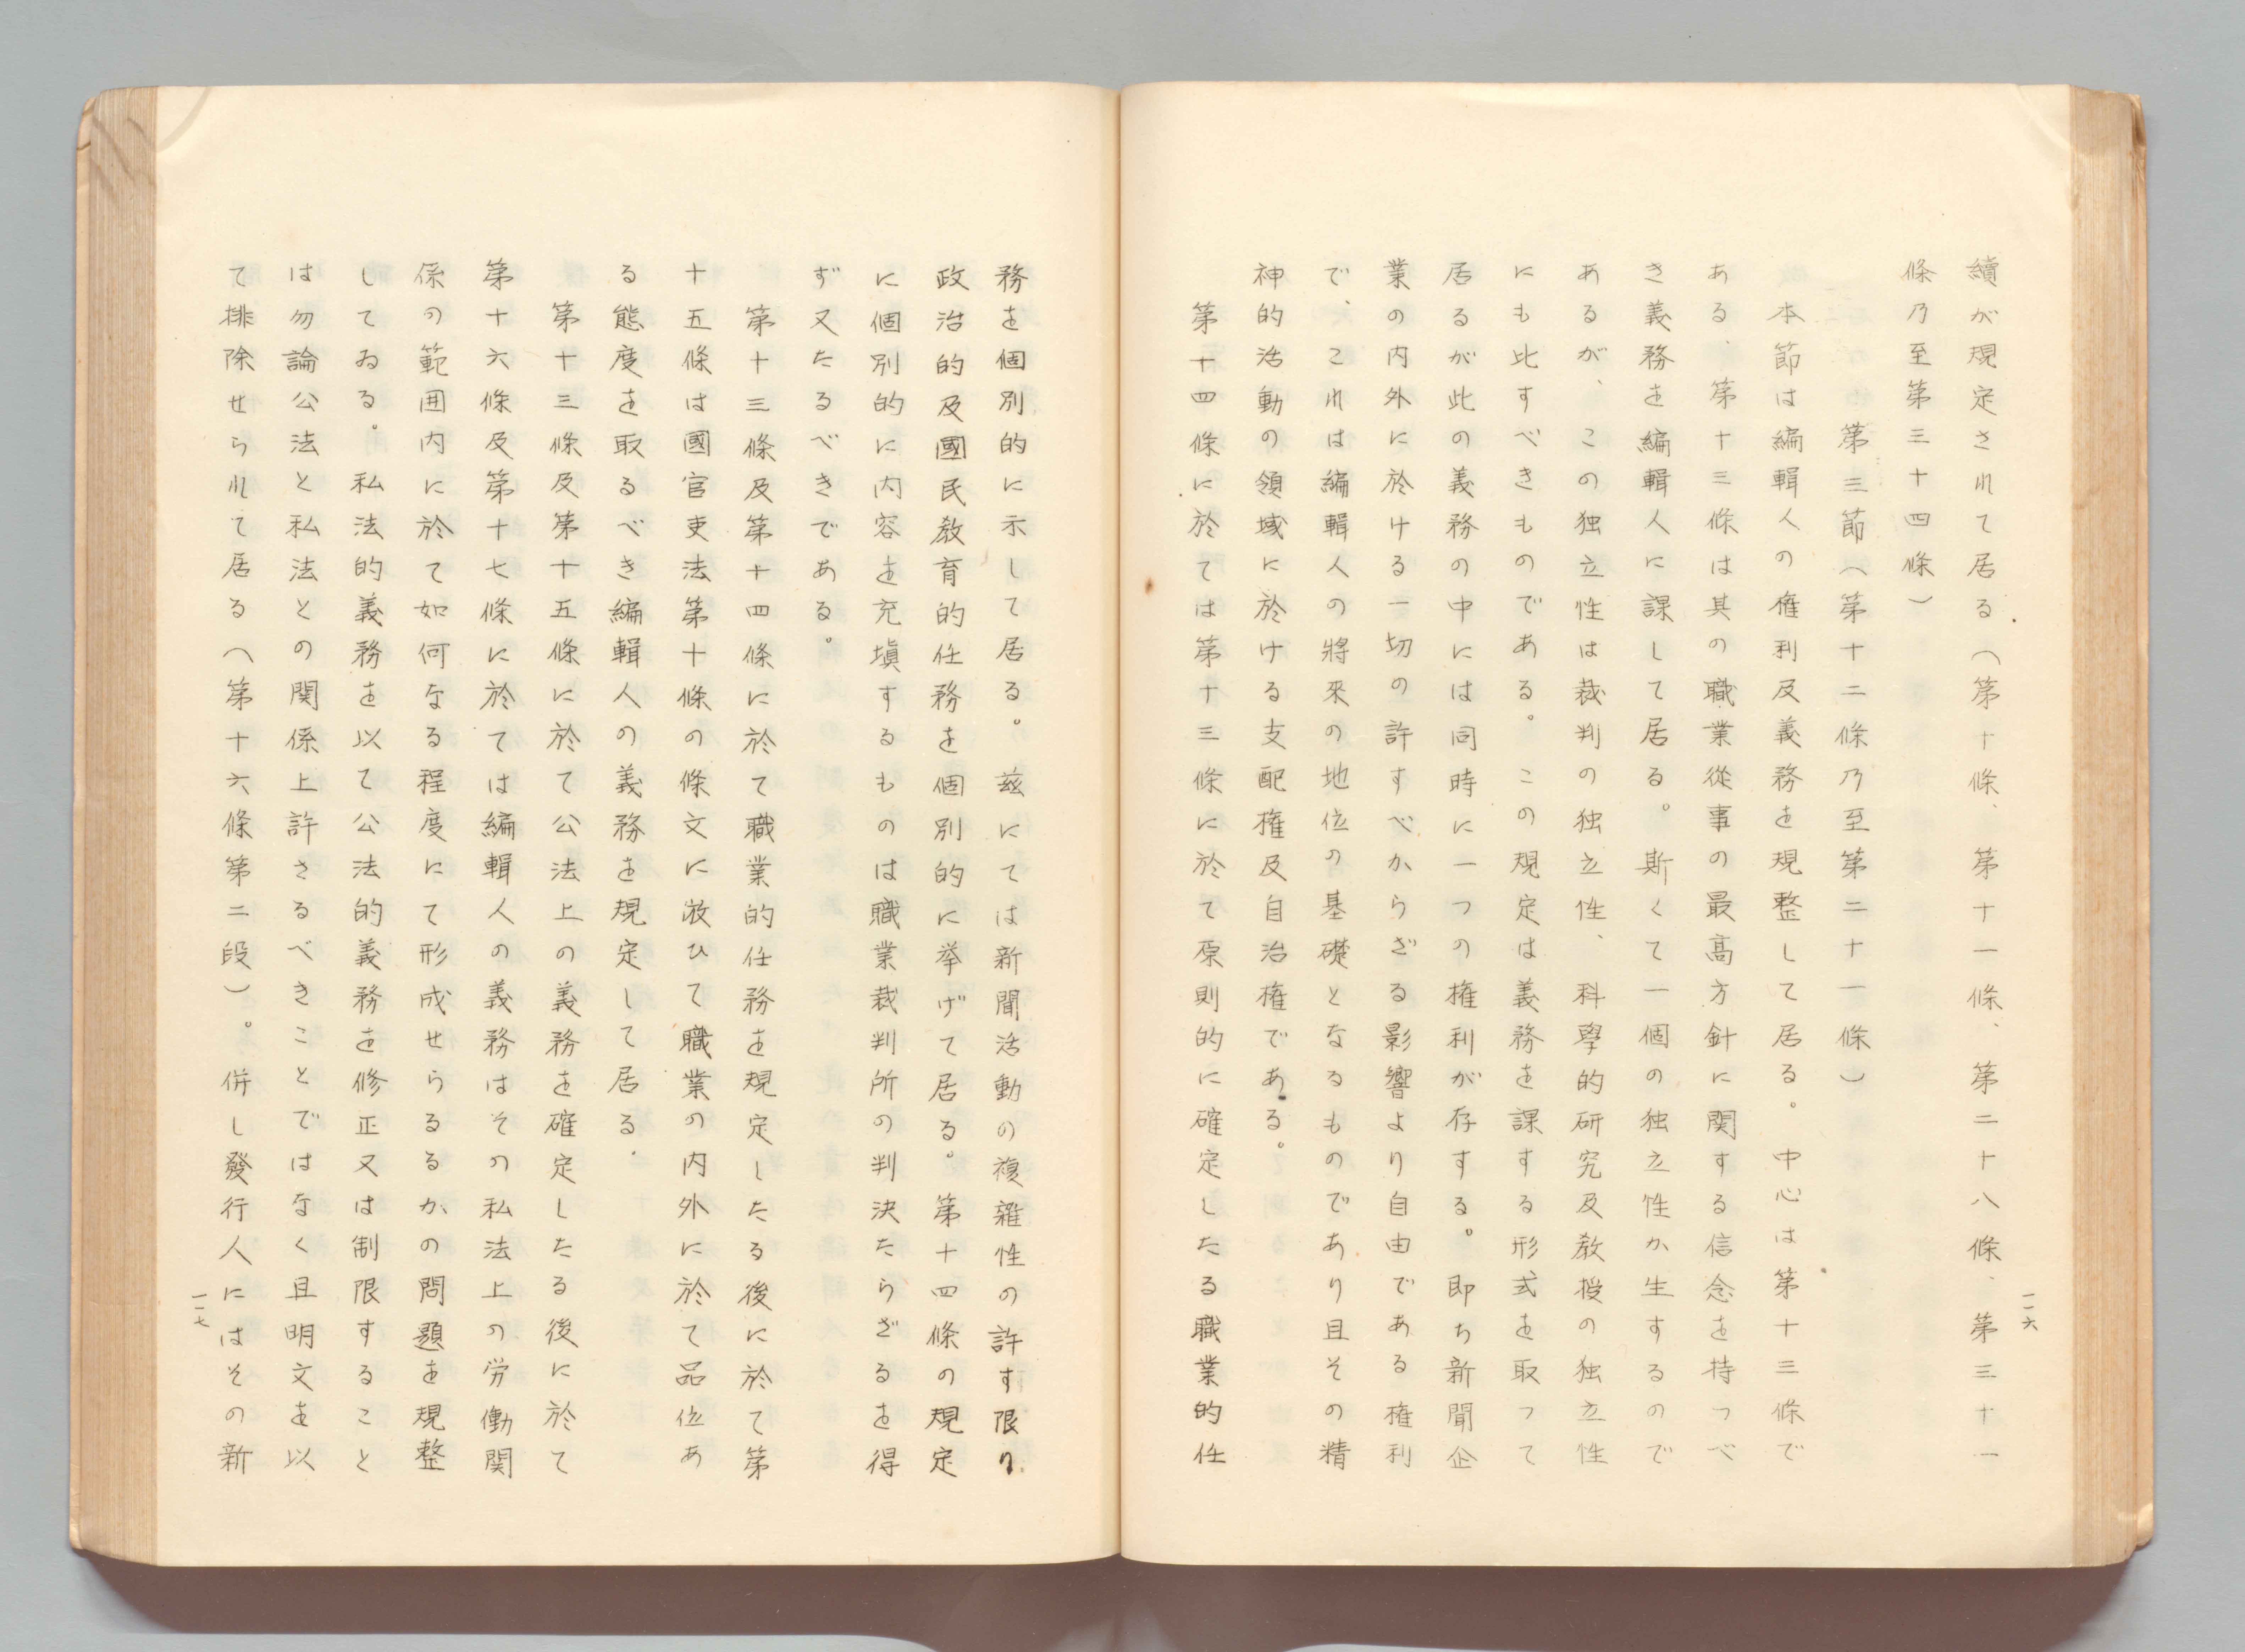 續が規定されて居る（第十條、第十一條、第二十八條、第三十一
條乃至第三十四條）
第三節（第十二條乃至第二十一條）
本節は編輯人の権利及義務を規整して居る。中心は第十三條で
ある、第十三條は其の職業從事の最高方針に関する信念を持つべ
き義務を編輯人に課して居る。斯くて一個の独立性か生するので
あるが、この独立性は裁判の独立性、科學的研究及教授の独立性
にも比すべきものである。この規定は義務を課する形式を取つて
居るが此の義務の中には同時に一つの権利が存する。即ち新聞企
業の内外に於ける一切の許すべからざる影響より自由である権利
で、これは編輯人の將來の地位の基礎となるものであり且その精
神的活動の領域に於ける支配権及自治権である。
第十四條に於ては第十三條に於て原則的に確定したる職業的任
一一六
務を個別的に示して居る。茲にては新聞活動の複雜性の許す限り
政治的及國民教育的任務を個別的に挙げて居る。第十四條の規定
に個別的に内容を充塡するものは職業裁判所の判決たらざるを得
ず又たるべきである。
第十三條及第十四條に於て職業的任務を規定したる後に於て第
十五條は國官吏法第十條の條文に倣ひて職業の内外に於て品位あ
る態度を取るべき編輯人の義務を規定して居る.
第十三條及第十五條に於て公法上の義務を確定したる後に於て
第十六條及第十七條に於ては編輯人の義務はその私法上の労働関
係の範囲内に於て如何なる程度にて形成せらるるかの問題を規整
してゐる。私法的義務を以て公法的義務を修正又は制限すること
は勿論公法と私法との関係上許さるべきことではなく且明文を以
て排除せられて居る（第十六條第二段）。併し發行人にはその新
一一七